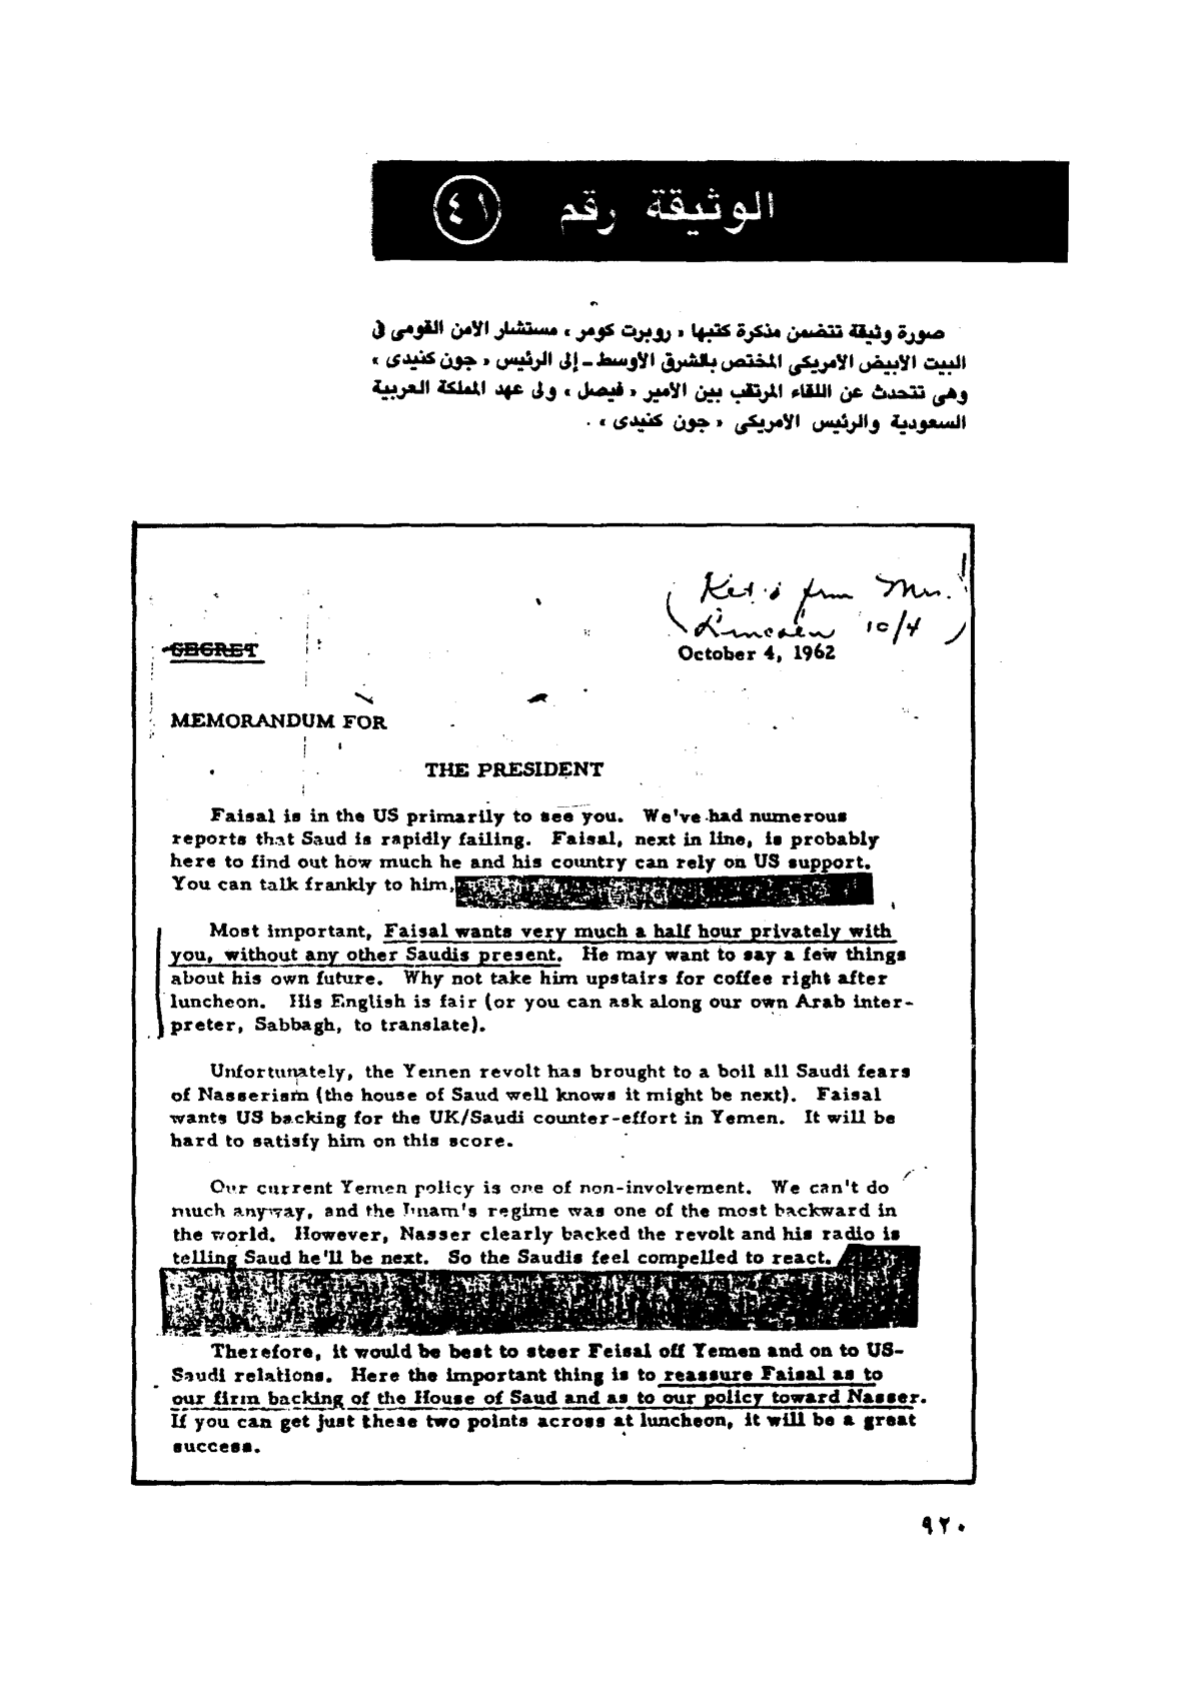 الوثيقة رقم ٤١
صورة وثيقة تتضمن مذكرة كتبها « روبرت كومر » مستشار الامن القومى فى
البيت الابيض الامريكى المختص بالشرق الأوسط ـ إلى الرئيس « جون كنيدى »
وهى تتحدث عن اللقاء المرتقب بين الأمير « فيصل » ولى عهد المملكة العربية
السعودية والرئيس الأمريكى « جون كنيدى » .
from Mrs.
Lincoln 10/4
SECRET
October 4, 1962
MEMORANDUM FOR
THE PRESIDENT
Faisal is in the US primarily to see you. We've had numerous
reports that Saud is rapidly failing. Faisal, next in line, is probably
here to find out how much he and his country can rely on US support.
You can talk frankly to him,
Most important, Faisal wants very much a half hour privately with
you, without any other Saudis present. He may want to say a few things
about his own future. Why not take him upstairs for coffee right after
luncheon. His English is fair (or you can ask along our own Arab inter-
preter, Sabbagh, to translate).
Unfortunately, the Yemen revolt has brought to a boil all Saudi fears
of Nasserism (the house of Saud well knows it might be next). Faisal
wants US backing for the UK/Saudi counter-effort in Yemen. It will be
hard to satisfy him on this score.
Our current Yemen policy is one of non-involvement. We can't do
much anyway, and the Imam's regime was one of the most backward in
the world. However, Nasser clearly backed the revolt and his radio is
telling Saud he'll be next. So the Saudis feel compelled to react.
Therefore, it would be best to steer Feisal off Yemen and on to US-
Saudi relations. Here the important thing is to reassure Faisal as to
our firm backing of the House of Saud and as to our policy toward Nasser.
If you can get just these two points across at luncheon, it will be a great
success.
٩٢٠